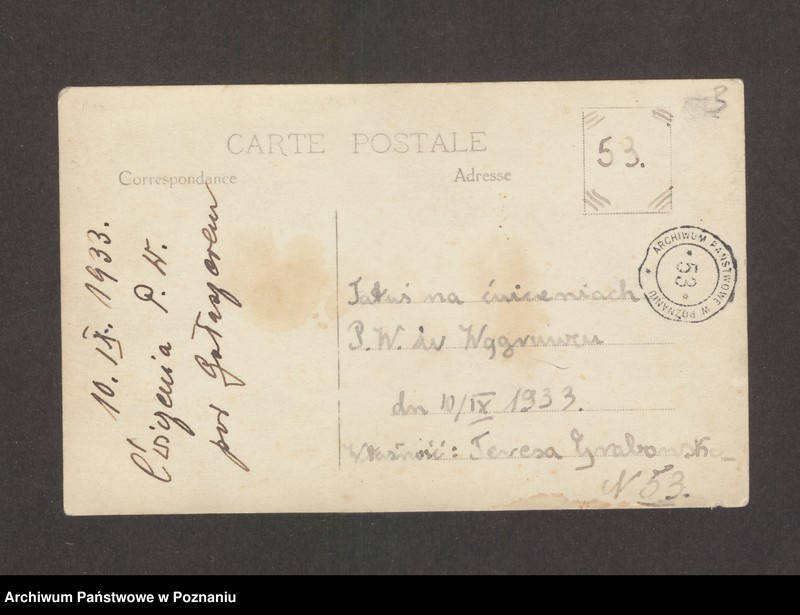 3
CARTE POSTALE
Correspondance
Adresse
53.
10. IX. 1933.
Ćwiczenia P. W.
pod Gołaszewem
ARCHIWUM PAŃSTWOWE W POZNANIU
* 53 *
Tatuś na ćwiczeniach
P. W. w Wągrówcu
dn 10/IX 1933.
Własność: Teresa Grabowska
N 53.
Archiwum Państwowe w Poznaniu